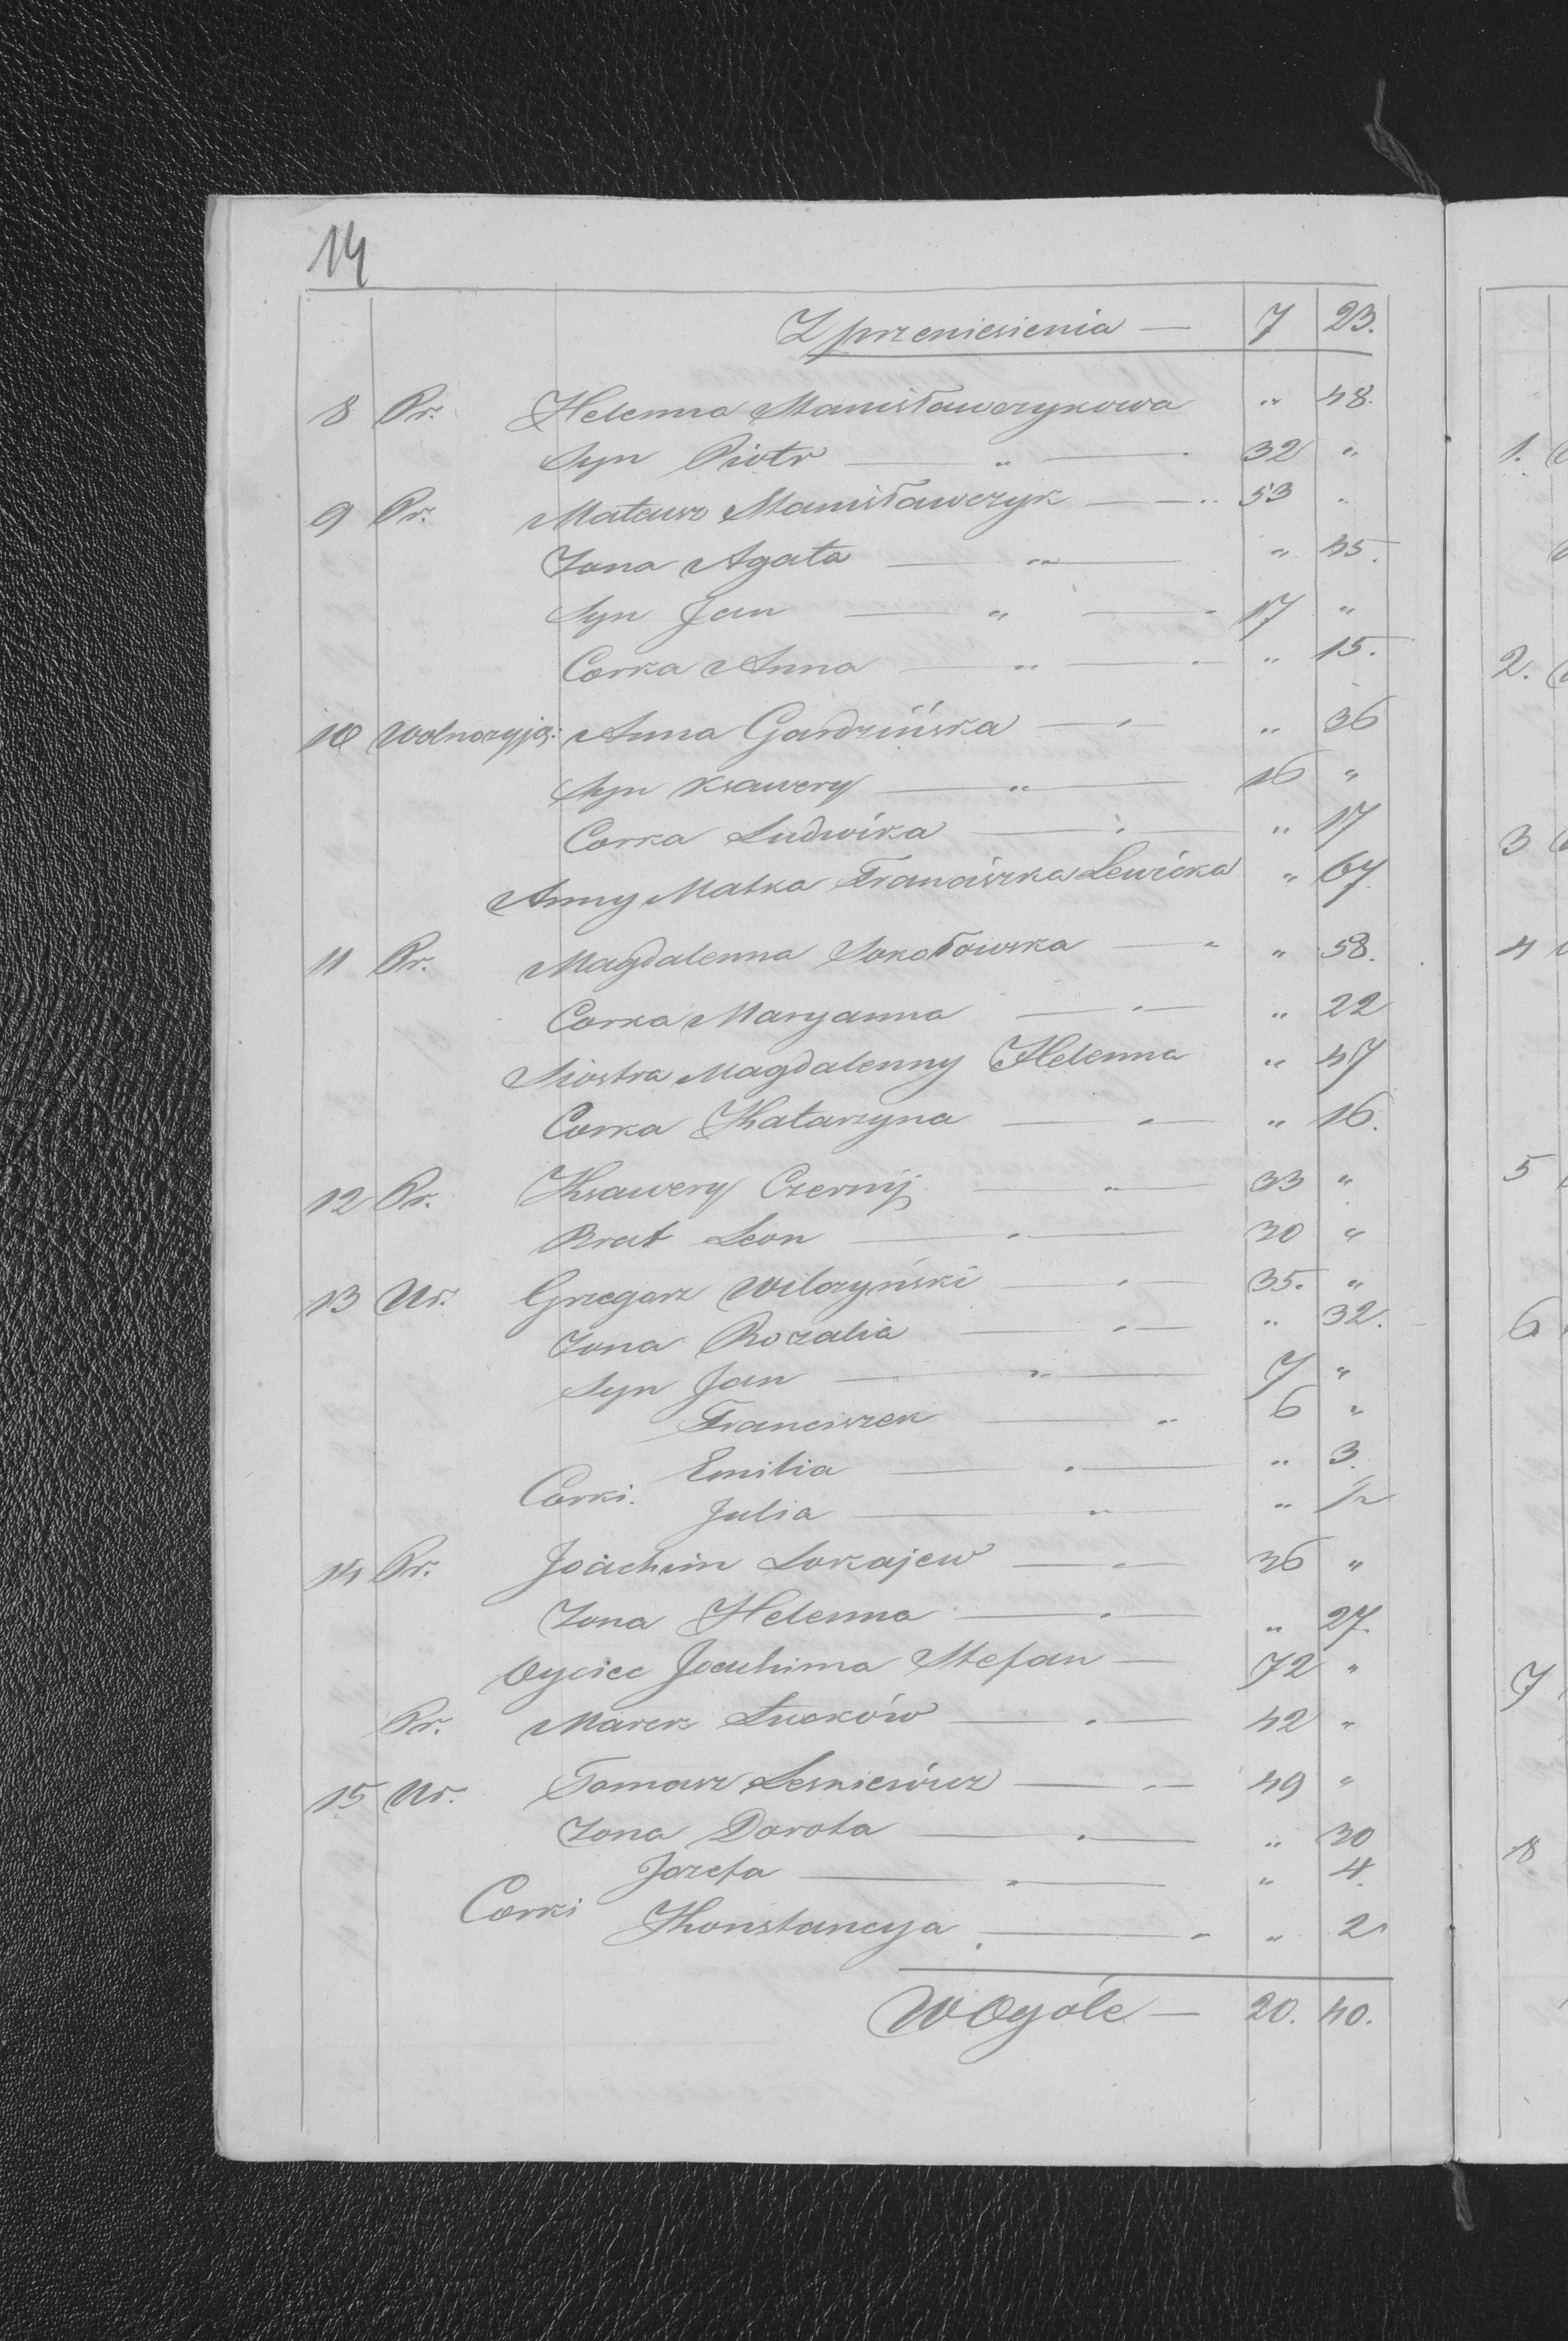 14
Z przeniesienia — 7 23.
8 Pr. Helenna Stanisławczykowa " 48.
Syn Piotr — " — 32 "
9 Pr. Mateusz Stanisławczyk — " 53 "
Zona Agata — " — " 45.
Syn Jan — " — 17 "
Corka Anna — " — " 15.
10 Wolnożyją: Anna Gardzińska — " — " 36
Syn Ksawery — " — 16 "
Corka Ludwika — " — " 17
Anny Matka Franciszka Lewicka " 67
11 Pr. Magdalenna Sokołowska — " " 58.
Corka Maryanna — " — " 22
Siostra Magdalenny Helenna " 47
Corka Katarzyna — " — " 16.
12 Pr. Ksawery Czernij — " — 33 "
Brat Leon — " — 30 "
13 Ur. Grzegorz Wilczyński — " — 35. "
Zona Rozalia — " — " 32.
Syn Jan — " — 7 "
Franciszek — " 6 "
Corki. Emilia — " — " 3.
Julia — " — " 1/2
14 Pr. Joachim Lokajew — " — 36 "
Zona Helenna — " — " 27.
Oyciec Joachima Stefan — 72 "
Pr. Marek Lucków — " — 42 "
15 Ur. Tomasz Leskiewicz — " — 49 "
Zona Dorota — " — " 30
Jozefa — " — " 4.
Corki Konstancya — " " 2
W Ogóle — 20. 40.
1.
2.
3
4
5
6
7
8